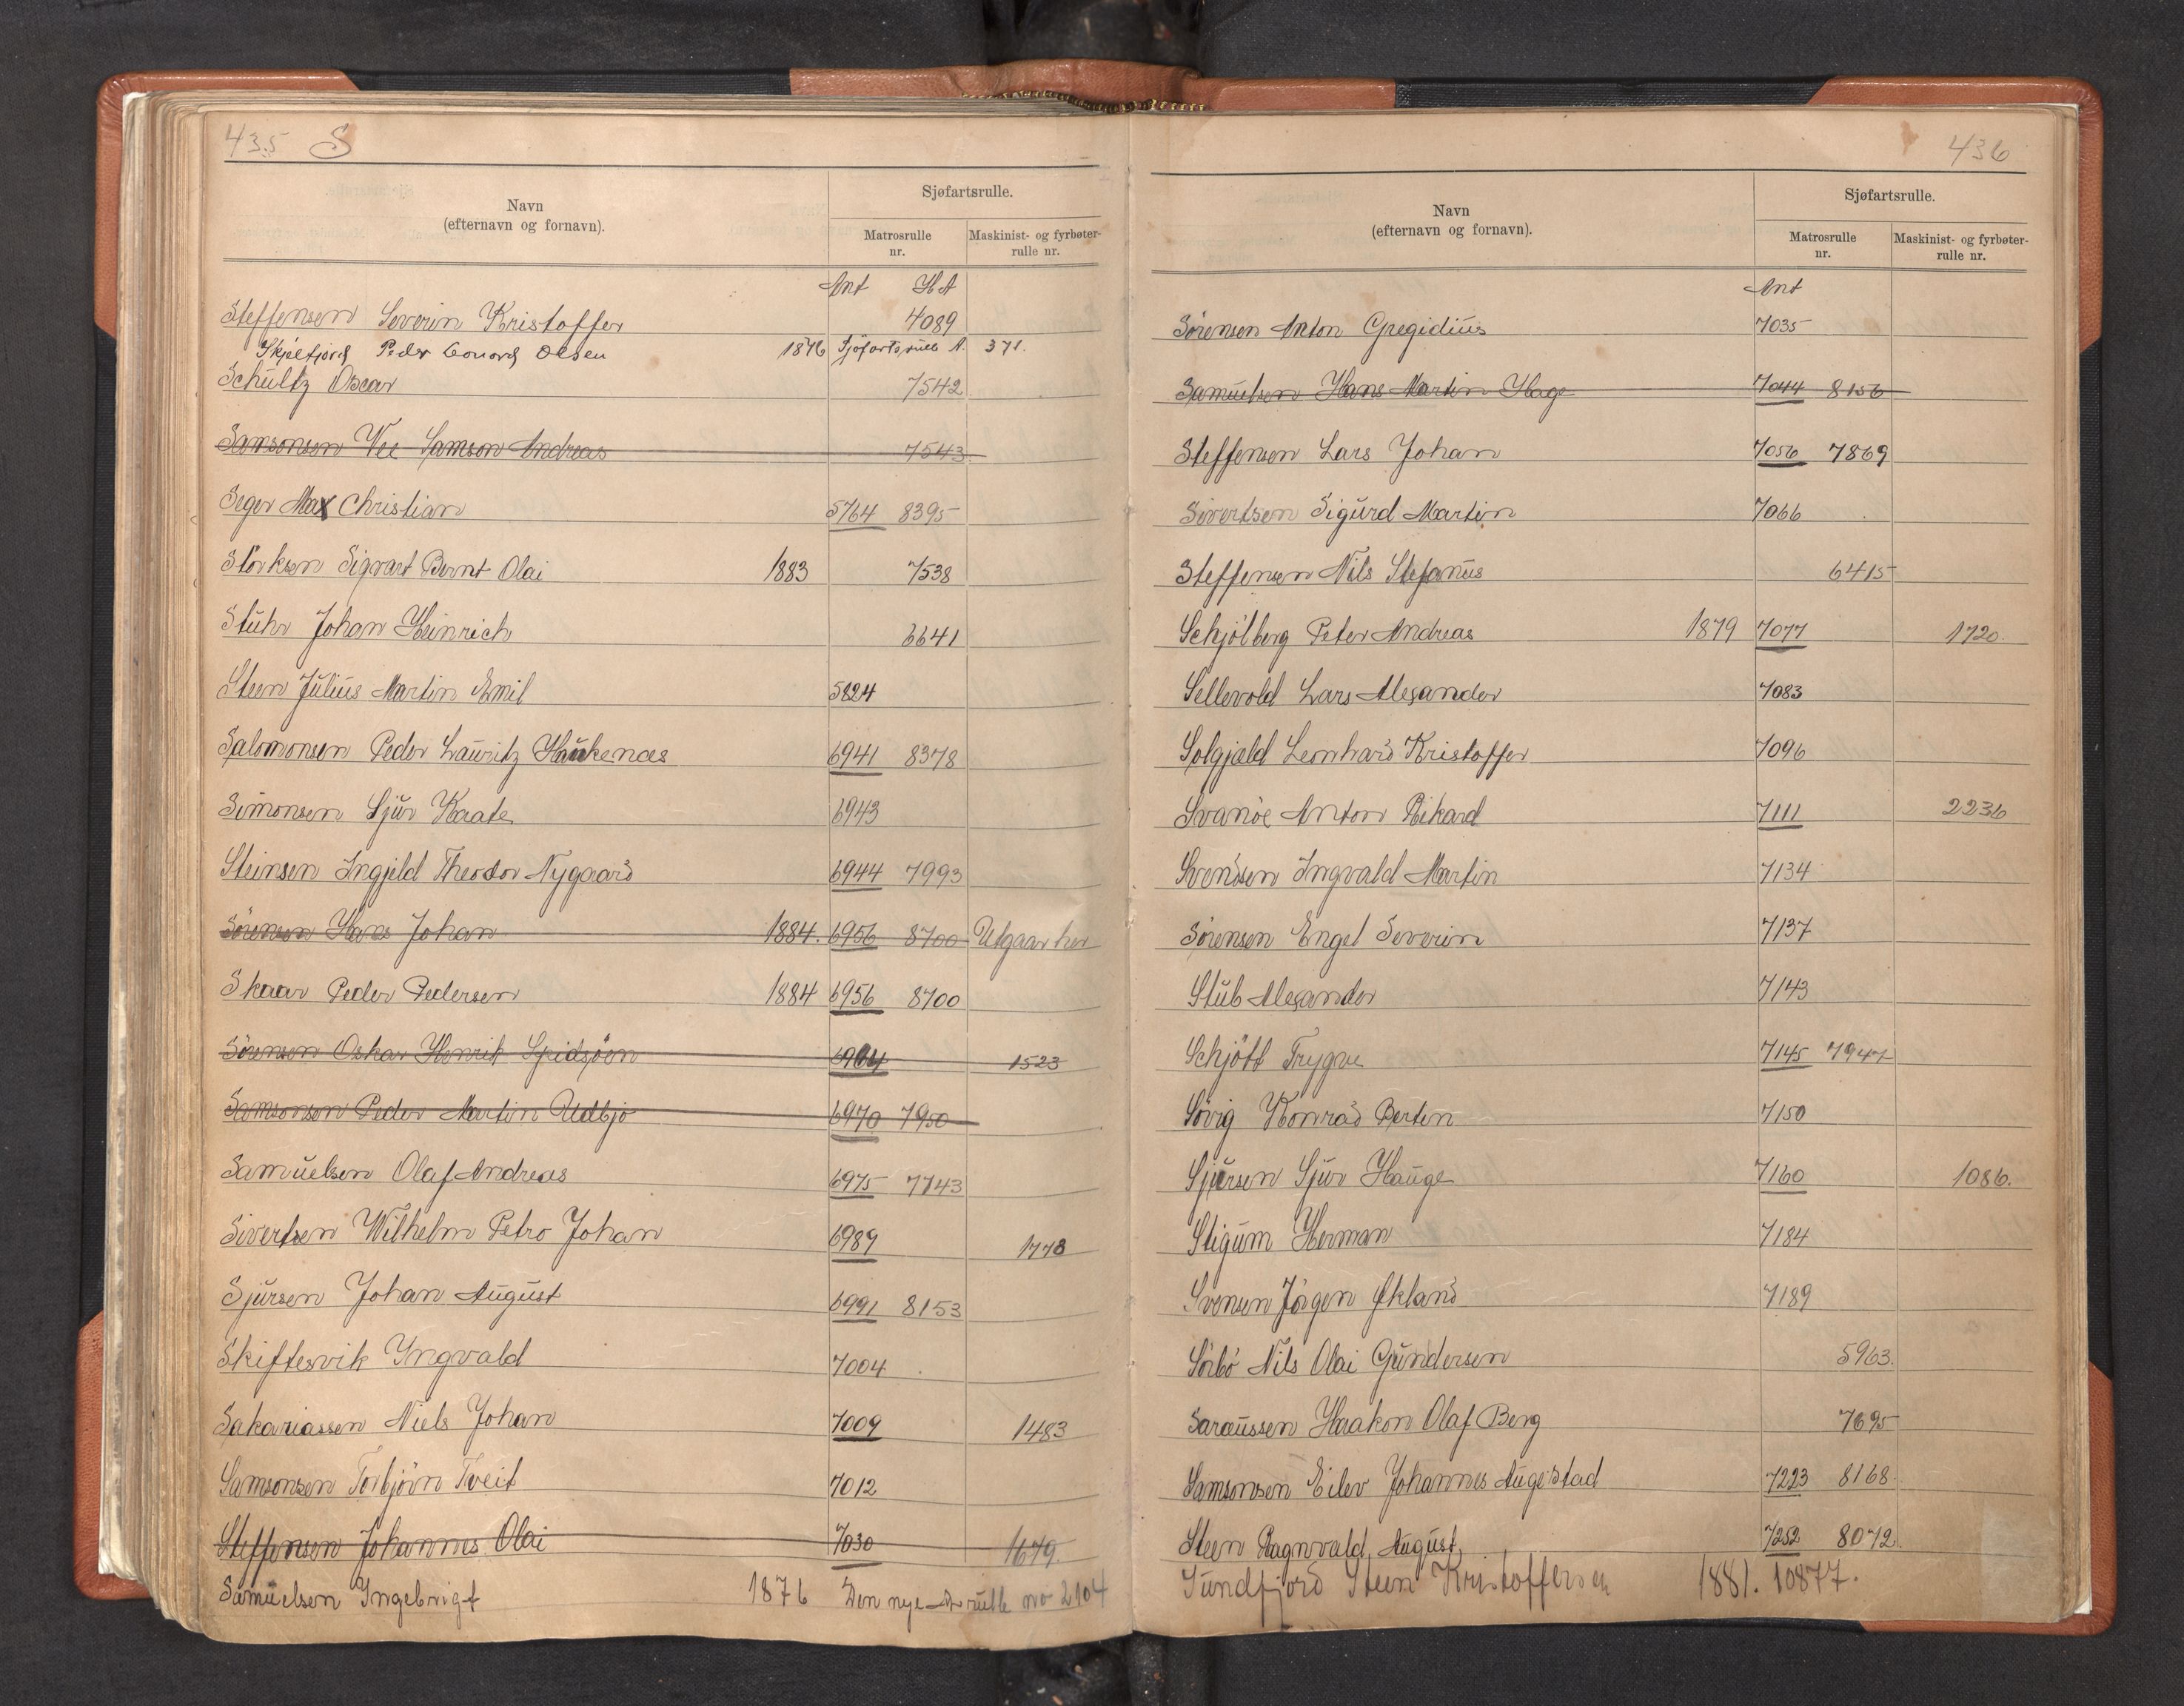 435 S
Navn
(efternavn og fornavn).
Sjøfartsrulle.
Matrosrulle
nr.
Maskinist- og fyrbøter-
rulle nr.
Ant HA
Steffensen Severin Kristoffer 4089
Skjelfjord Peder Olsen 1876 Sjøfartsrulle A. 371.
Schultz Oscar 7542
Samsonsen Vee Samson Andreas 7543
Seger Max Christian 5764 8395
Störksen Sigvart Bernt Olai 1883 7538
Stuhr Johan Heinrich 6641
Steen Julius Martin Emil 5824
Salomonsen Peder Lauritz Haukenæs 6941 8378
Simonsen Sjur Kaate 6943
Steinsen Ingjeld Theodor Nygaard 6944 7993
Sörensen Hans Johan 1884. 6956 8700 Utgaar her
Skaar Peder Pedersen 1884 6956 8700
Sörensen Oskar Henrik Spidsöen 6964 1523
Samsonsen Peder Martin Udbjo 6970 7950
Samuelsen Olaf Andreas 6975 7743
Sivertsen Wilhelm Petro Johan 6989 1778
Sjursen Johan August 6991 8153
Skiftesvik Yngvald 7004
Sakariassen Niels Johan 7009 1483
Samsonsen Torbjörn Tveit 7012
Steffensen Johannes Olai 7030 1679
Samuelsen Ingebrigt 1876 Den nye A rulle no 2104
436
Navn
(efternavn og fornavn).
Sjøfartsrulle.
Matrosrulle
nr.
Maskinist- og fyrbøter-
rulle nr.
Ant
Sörensen Anton Gregidius 7035
Samuelsen Hans Martin Hage 7044 8156
Steffensen Lars Johan 7056 7869
Sivertsen Sigurd Martin 7066
Steffensen Nils Stefanus 6415
Schjölberg Peter Andreas 1879 7077 1720.
Sellevold Lars Alexander 7083
Solgjæld Leonhard Kristoffer 7096
Svanöe Anton Rikard 7111 2236
Svendsen Ingvald Martin 7134
Sörensen Engel Severin 7137
Stub Alexander 7143
Schjött Trygve 7145 7947
Sövig Konrad Bertin 7150
Sjursen Sjur Hauge 7160 1086.
Stigum Herman 7184
Svensen Jörgen Økland 7189
Sörbö Nils Olai Gundersen 5963.
Saraussen Haakon Olaf Berg 7695
Samsonsen Eilev Johannes Augestad 7223 8168
Steen Ragnvald August 7252 8072
Sundfjord Steen Kristoffersen 1881. 10877.